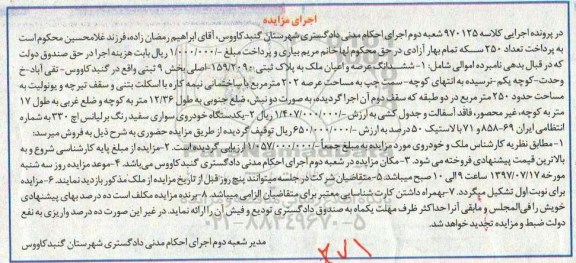 اجرای مزایده
در پرونده اجرایی کلاسه ۹۷۰۱۲۵ شعبه دوم اجرای احکام مدنی دادگستری شهرستان گنبدکاووس، آقای ابراهیم رمضان زاده، فرزند غلامحسین محکوم است
به پرداخت تعداد ۲۵۰ سکه تمام بهار آزادی در حق محکوم لها خانم مریم بیاری و پرداخت مبلغ -/۱/۰۰۰/۰۰۰ ریال بابت هزینه اجرا در حق صندوق دولت
که در قبال بدهی نامبرده اموالی شامل: ۱-ششدانگ عرصه و اعیان ملک به پلاک ثبتی ۱۵۹/۲۰۹:-اصلی بخش ۹ ثبتی واقع در گنبدکاووس-تقی آباد-خ
وحدت-کوچه یکم-نرسیده به انتهای کوچه-سمت چپ به مساحت عرصه ۲۰۲ مترمربع با ساختمانی نیمه کاره با اسکلت بتنی و سقف تیرچه و یونولیت به
مساحت حدود ۲۵۰ متر مربع در دو طبقه که سقف دوم آن اجرا گردیده، به صورت دو نبش، ضلع جنوبی به طول ۱۲/۳۶ متر به کوچه و ضلع غربی به طول ۱۷
متر به کوچه، غیرمحصور، فاقد آسفالت و جدول کشی به ارزش -/۱/۴۰۷/۰۰۰/۰۰۰ ریال ۲-یکدستگاه خودروی سواری سفید رنگ برلیانس اچ ۳۳۰ به شماره
انتظامی ایران ۶۹-۸۵۸و ۷۱ با لاستیک ۵۰ درصد به ارزش -/۶۵۰/۰۰۰/۰۰۰ ریال توقیف گردیده از طریق مزایده حضوری به شرح ذیل به فروش میرسد:
۱-مطابق نظریه کارشناس ملک و خودروی مورد مزایده به مبلغ جمعاً -/۲/۰۵۷/۰۰۰/۰۰۰ ریال ارزیابی گردیده است. ۲-مزایده از مبلغ پایه کارشناسی شروع و به
بالاترین قیمت پیشنهادی فروخته می شود. ۳-مکان مزایده در شعبه دوم اجرای احکام مدنی دادگستری گنبد کاووس می باشد. ۴-موعد مزایده روز سه شنبه
مورخه ۱۳۹۷/۰۷/۱۷ ساعت ۹ الی ۱۰ صبح میباشد. ۵-متقاضیان شرکت در جلسه میتوانند پنج روز قبل از تاریخ مزایده از ملک مذکور بازدید نمایند. ۶-مزایده
برای نوبت اول تشکیل میگردد. ۷-بهمراه داشتن کارت شناسایی معتبر برای متقاضیان الزامی میباشد. ۸-برنده مزایده مکلف است ده درصد بهای پیشنهادی
خویش را فی المجلس و مابقی آنرا حداکثر ظرف مهلت یکماه به صندوق دادگستری تودیع و فیش آن را ارائه نماید. در غیر این صورت ده درصد واریزی به نفع
دولت ضبط و مزایده تجدید خواهد شد.
مدیر شعبه دوم اجرای احکام مدنی دادگستری شهرستان گنبد کاووس
۰۲۱-۸۸۳۴۹۶۷۰-۵